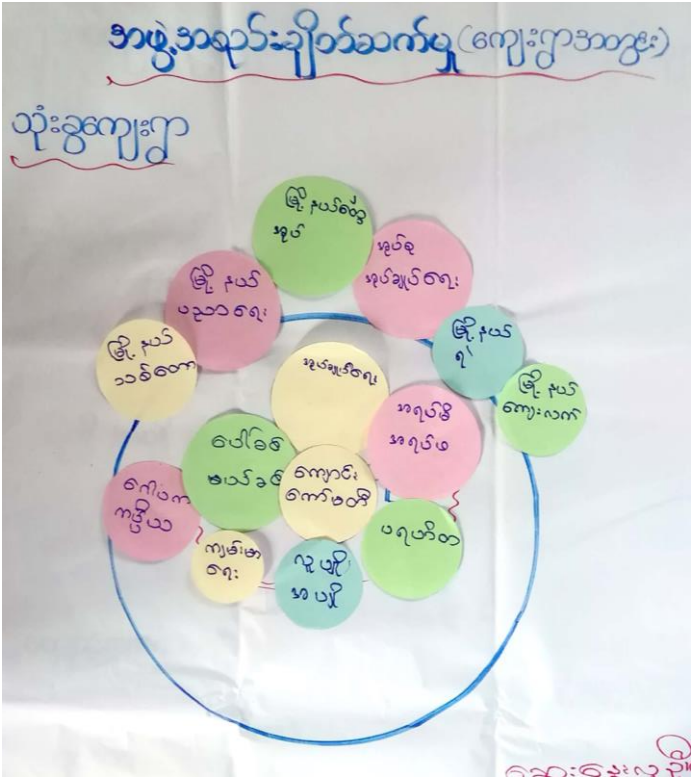 အဖွဲ့အစည်းချိတ်ဆက်မှု (ကျေးရွာအတွင်း)
သုံးခွကျေးရွာ
မြို့နယ်
အုပ်
အုပ်စု
အုပ်ချုပ်ရေး
မြို့နယ်
ပညာရေး
မြို့နယ်
ရဲ
မြို့နယ်
သစ်တော
မြို့နယ်
ကျေးလက်
အုပ်ချုပ်ရေး
အရပ်မိ
အရပ်ဖ
ကျောင်း
ကော်မတီ
ဂေါပက
ကပ္ပိယ
ပရဟိတ
ကျမ်းမာ
ရေး
လူပျို
အပျို